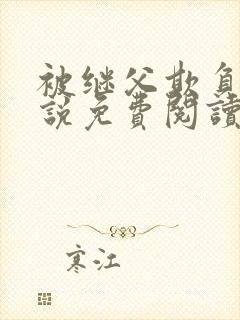 被继父欺负
說免費閱讀
寒江